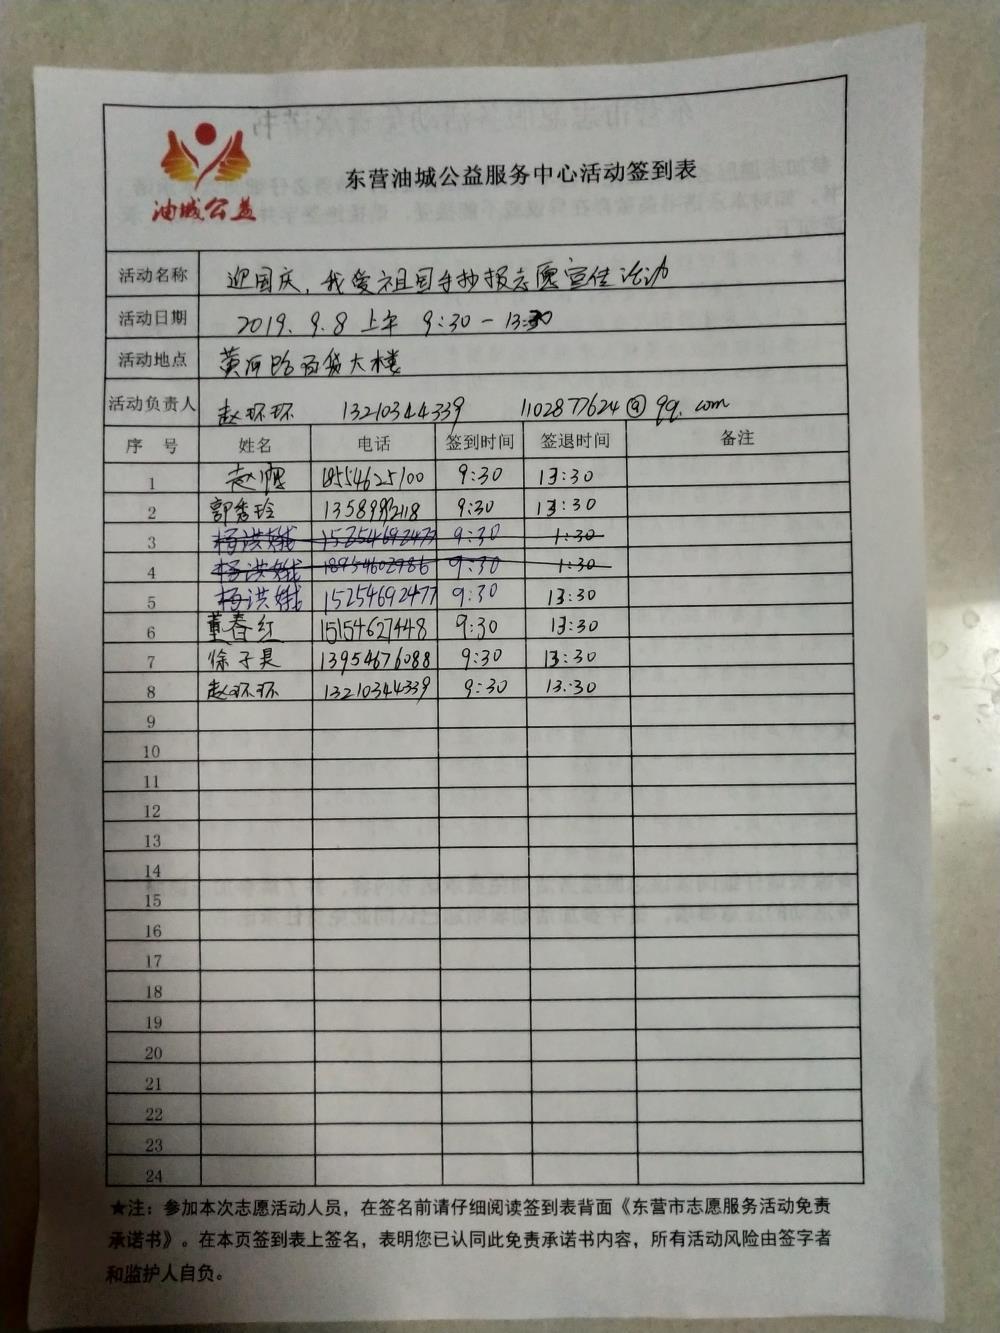 油城公益
东营油城公益服务中心活动签到表
活动名称 迎国庆,我爱祖国手抄报志愿宣传活动
活动日期 2019.9.8 上午 9:30-13:30
活动地点 黄河路百货大楼
活动负责人 赵环环 13210344339 1102877624@qq.com
序 号 姓名 电话 签到时间 签退时间 备注
1 赵 18554625100 9:30 13:30
2 郭秀玲 13589992118 9:30 13:30
3 杨洪娥 15254692477 9:30 1:30
4 杨洪娥 18954602986 9:30 1:30
5 杨洪娥 15254692477 9:30 13:30
6 董春红 15154627448 9:30 13:30
7 徐子昊 13954676088 9:30 13:30
8 赵环环 13210344339 9:30 13:30
9
10
11
12
13
14
15
16
17
18
19
20
21
22
23
24
★注:参加本次志愿活动人员,在签名前请仔细阅读签到表背面《东营市志愿服务活动免责
承诺书》。在本页签到表上签名,表明您已认同此免责承诺书内容,所有活动风险由签字者
和监护人自负。